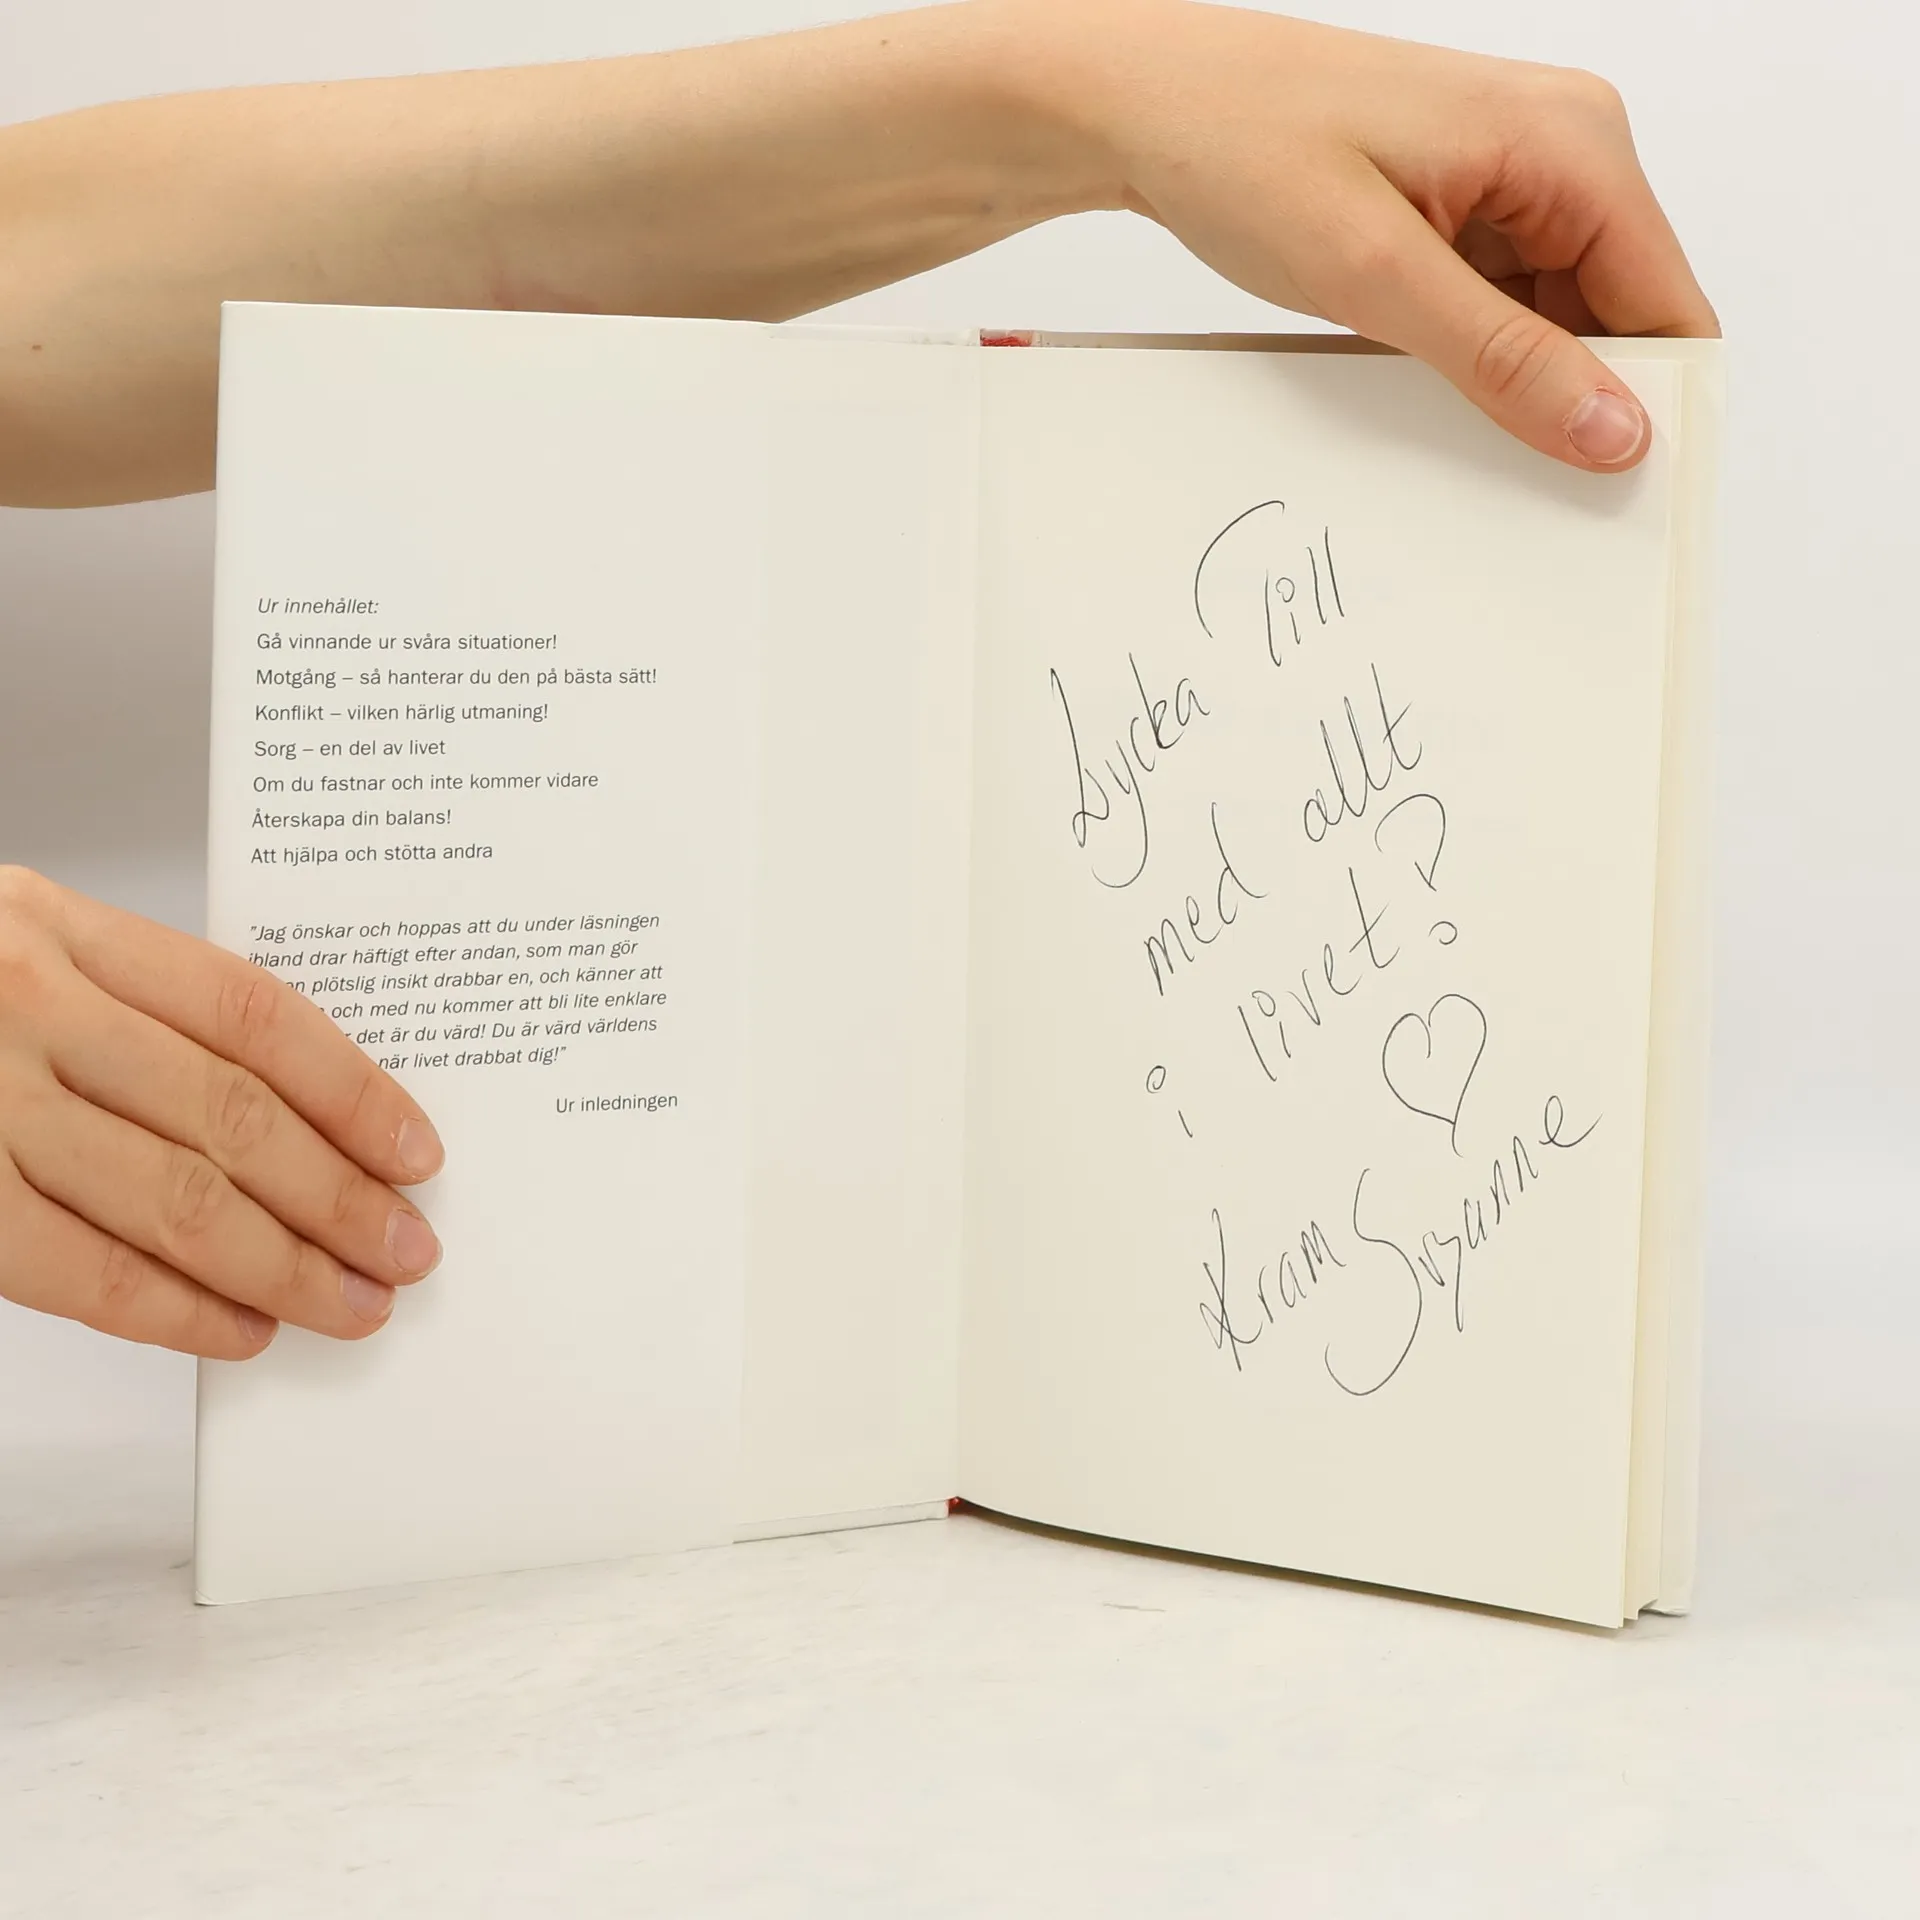 Ur innehållet:
Gå vinnande ur svåra situationer!
Motgång – så hanterar du den på bästa sätt!
Konflikt – vilken härlig utmaning!
Sorg – en del av livet
Om du fastnar och inte kommer vidare
Återskapa din balans!
Att hjälpa och stötta andra
"Jag önskar och hoppas att du under läsningen
ibland drar häftigt efter andan, som man gör
plötslig insikt drabbar en, och känner att
och med nu kommer att bli lite enklare
det är du värd! Du är värd världens
när livet drabbat dig!"
Ur inledningen
Lycka Till
med allt
i livet!
Kram Suzanne